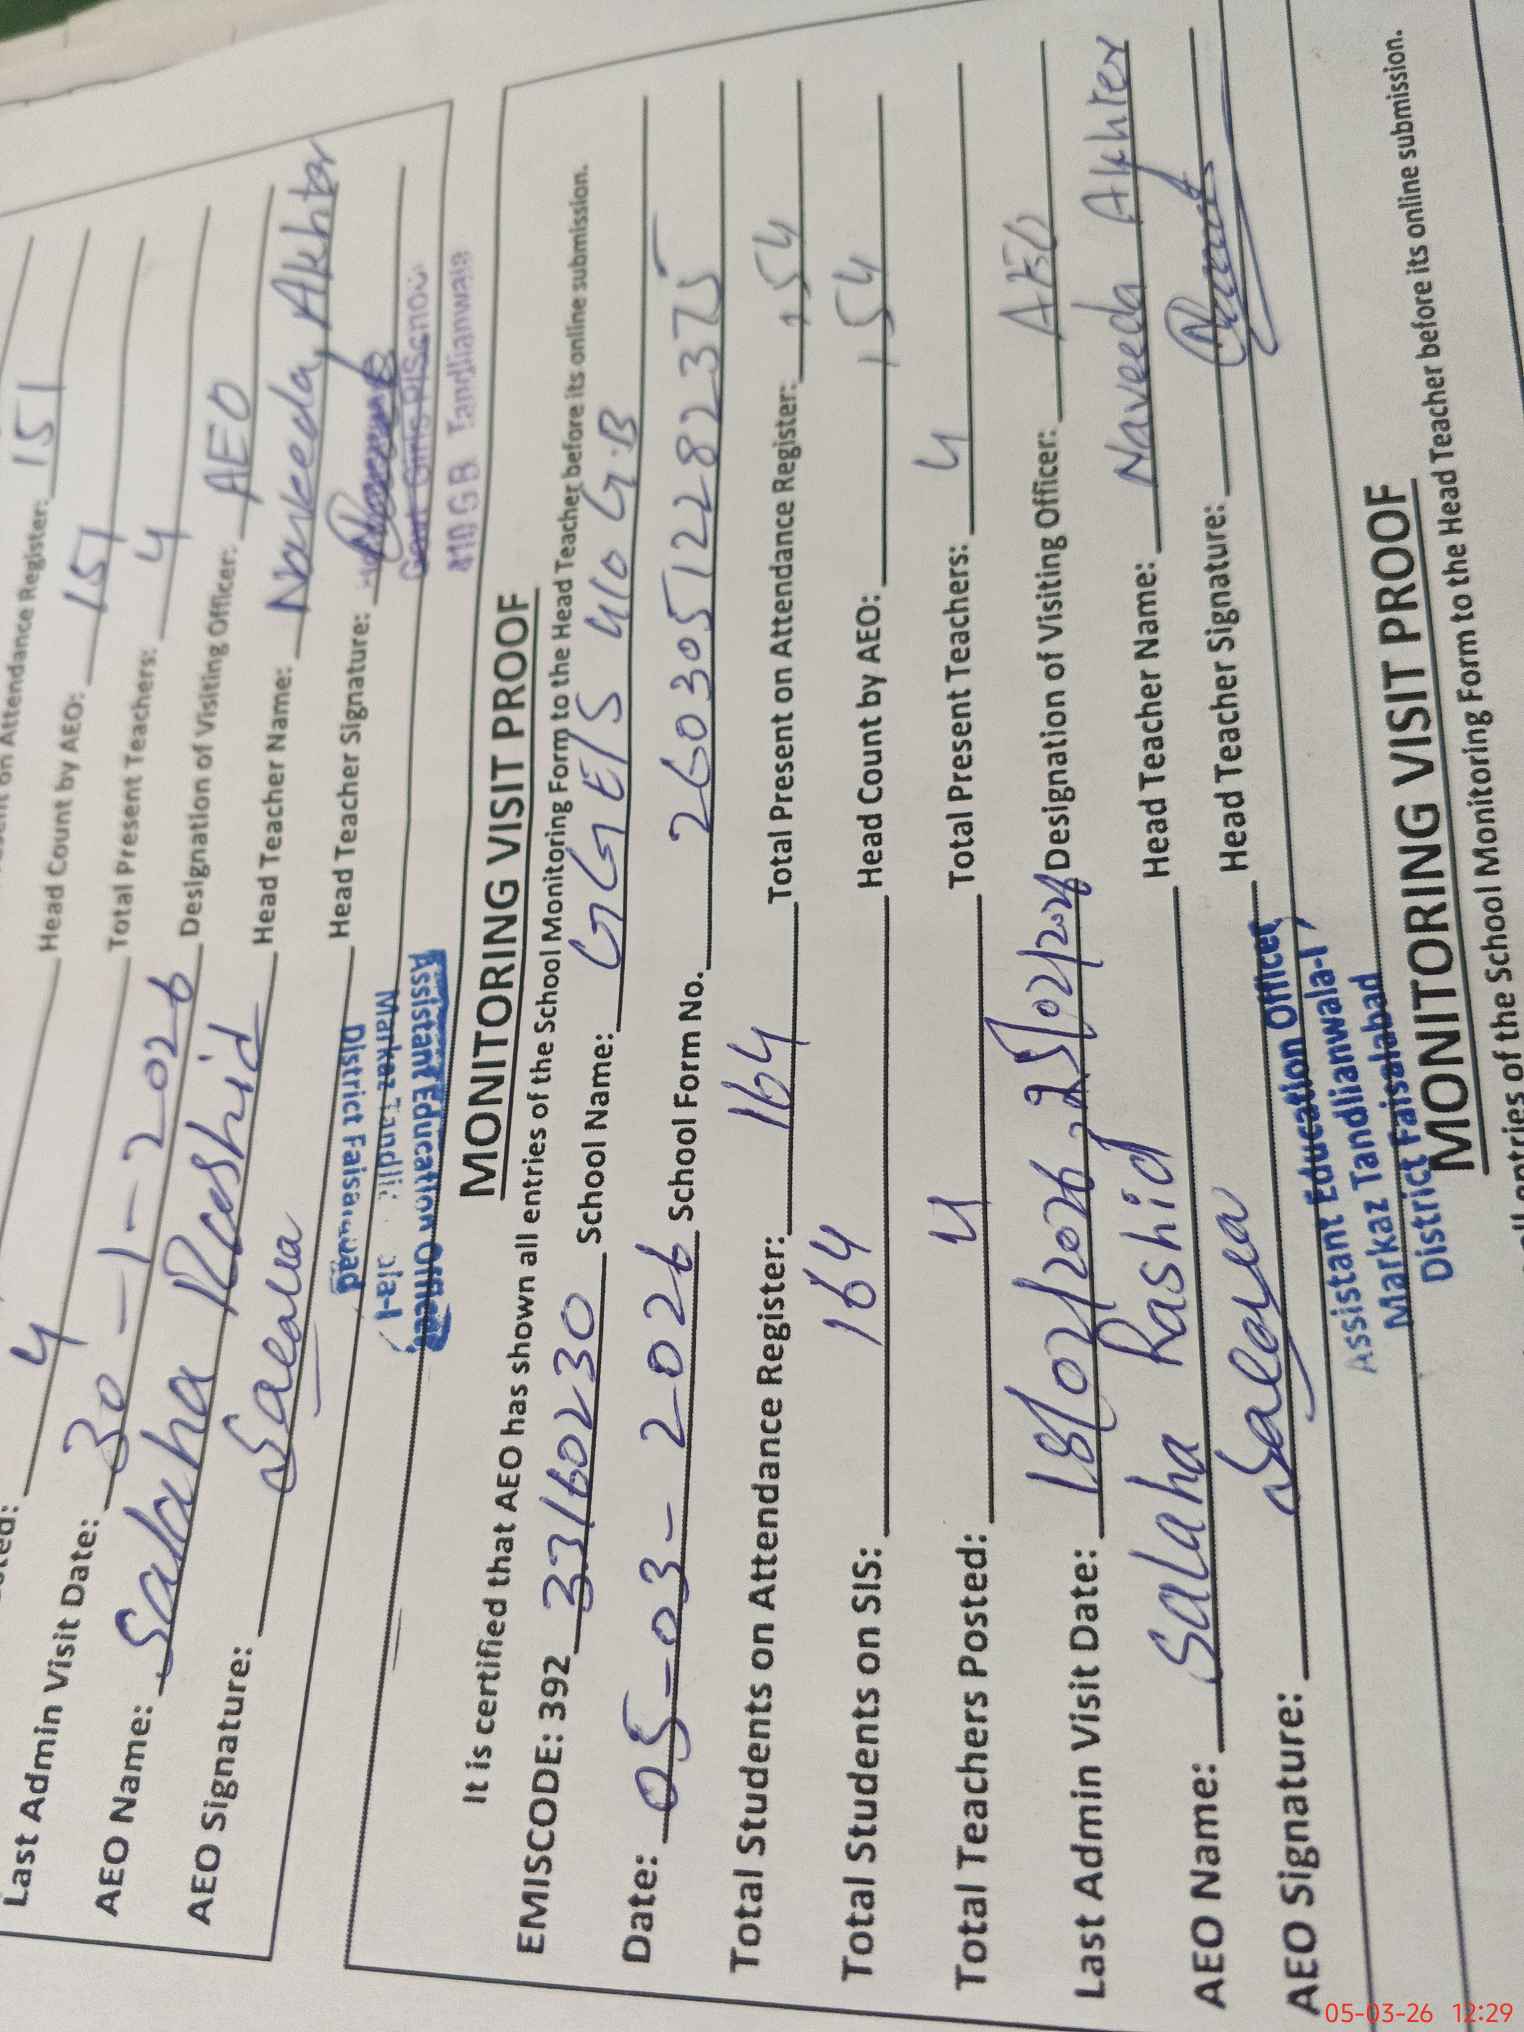 on Attendance Register: 151
Head Count by AEO: 151
4 Total Present Teachers: 4
Last Admin Visit Date: 30-1-2026 Designation of Visiting Officer: AEO
AEO Name: Salaha Rashid Head Teacher Name: Naveeda Akhtar
AEO Signature: Head Teacher Signature:
Assistant Education Officer
Markaz
District
410 GB Tandlianwala
MONITORING VISIT PROOF
It is certified that AEO has shown all entries of the School Monitoring Form to the Head Teacher before its online submission.
EMISCODE: 392 33160230 School Name: GGE/S 410 G.B
Date: 05-03-2026 School Form No. 2603051228 2375
Total Students on Attendance Register: 164 Total Present on Attendance Register: 154
Total Students on SIS: 164 Head Count by AEO: 154
Total Teachers Posted: 4 Total Present Teachers: 4
Last Admin Visit Date: 18/02/2026, 25/02/2026 Designation of Visiting Officer: AEO
AEO Name: Salaha Rashid Head Teacher Name: Naveeda Akhter
AEO Signature: Head Teacher Signature:
Assistant Education Officer
Markaz Tandlianwala-I
District Faisalabad
MONITORING VISIT PROOF
entries of the School Monitoring Form to the Head Teacher before its online submission.
05-03-26 12:29